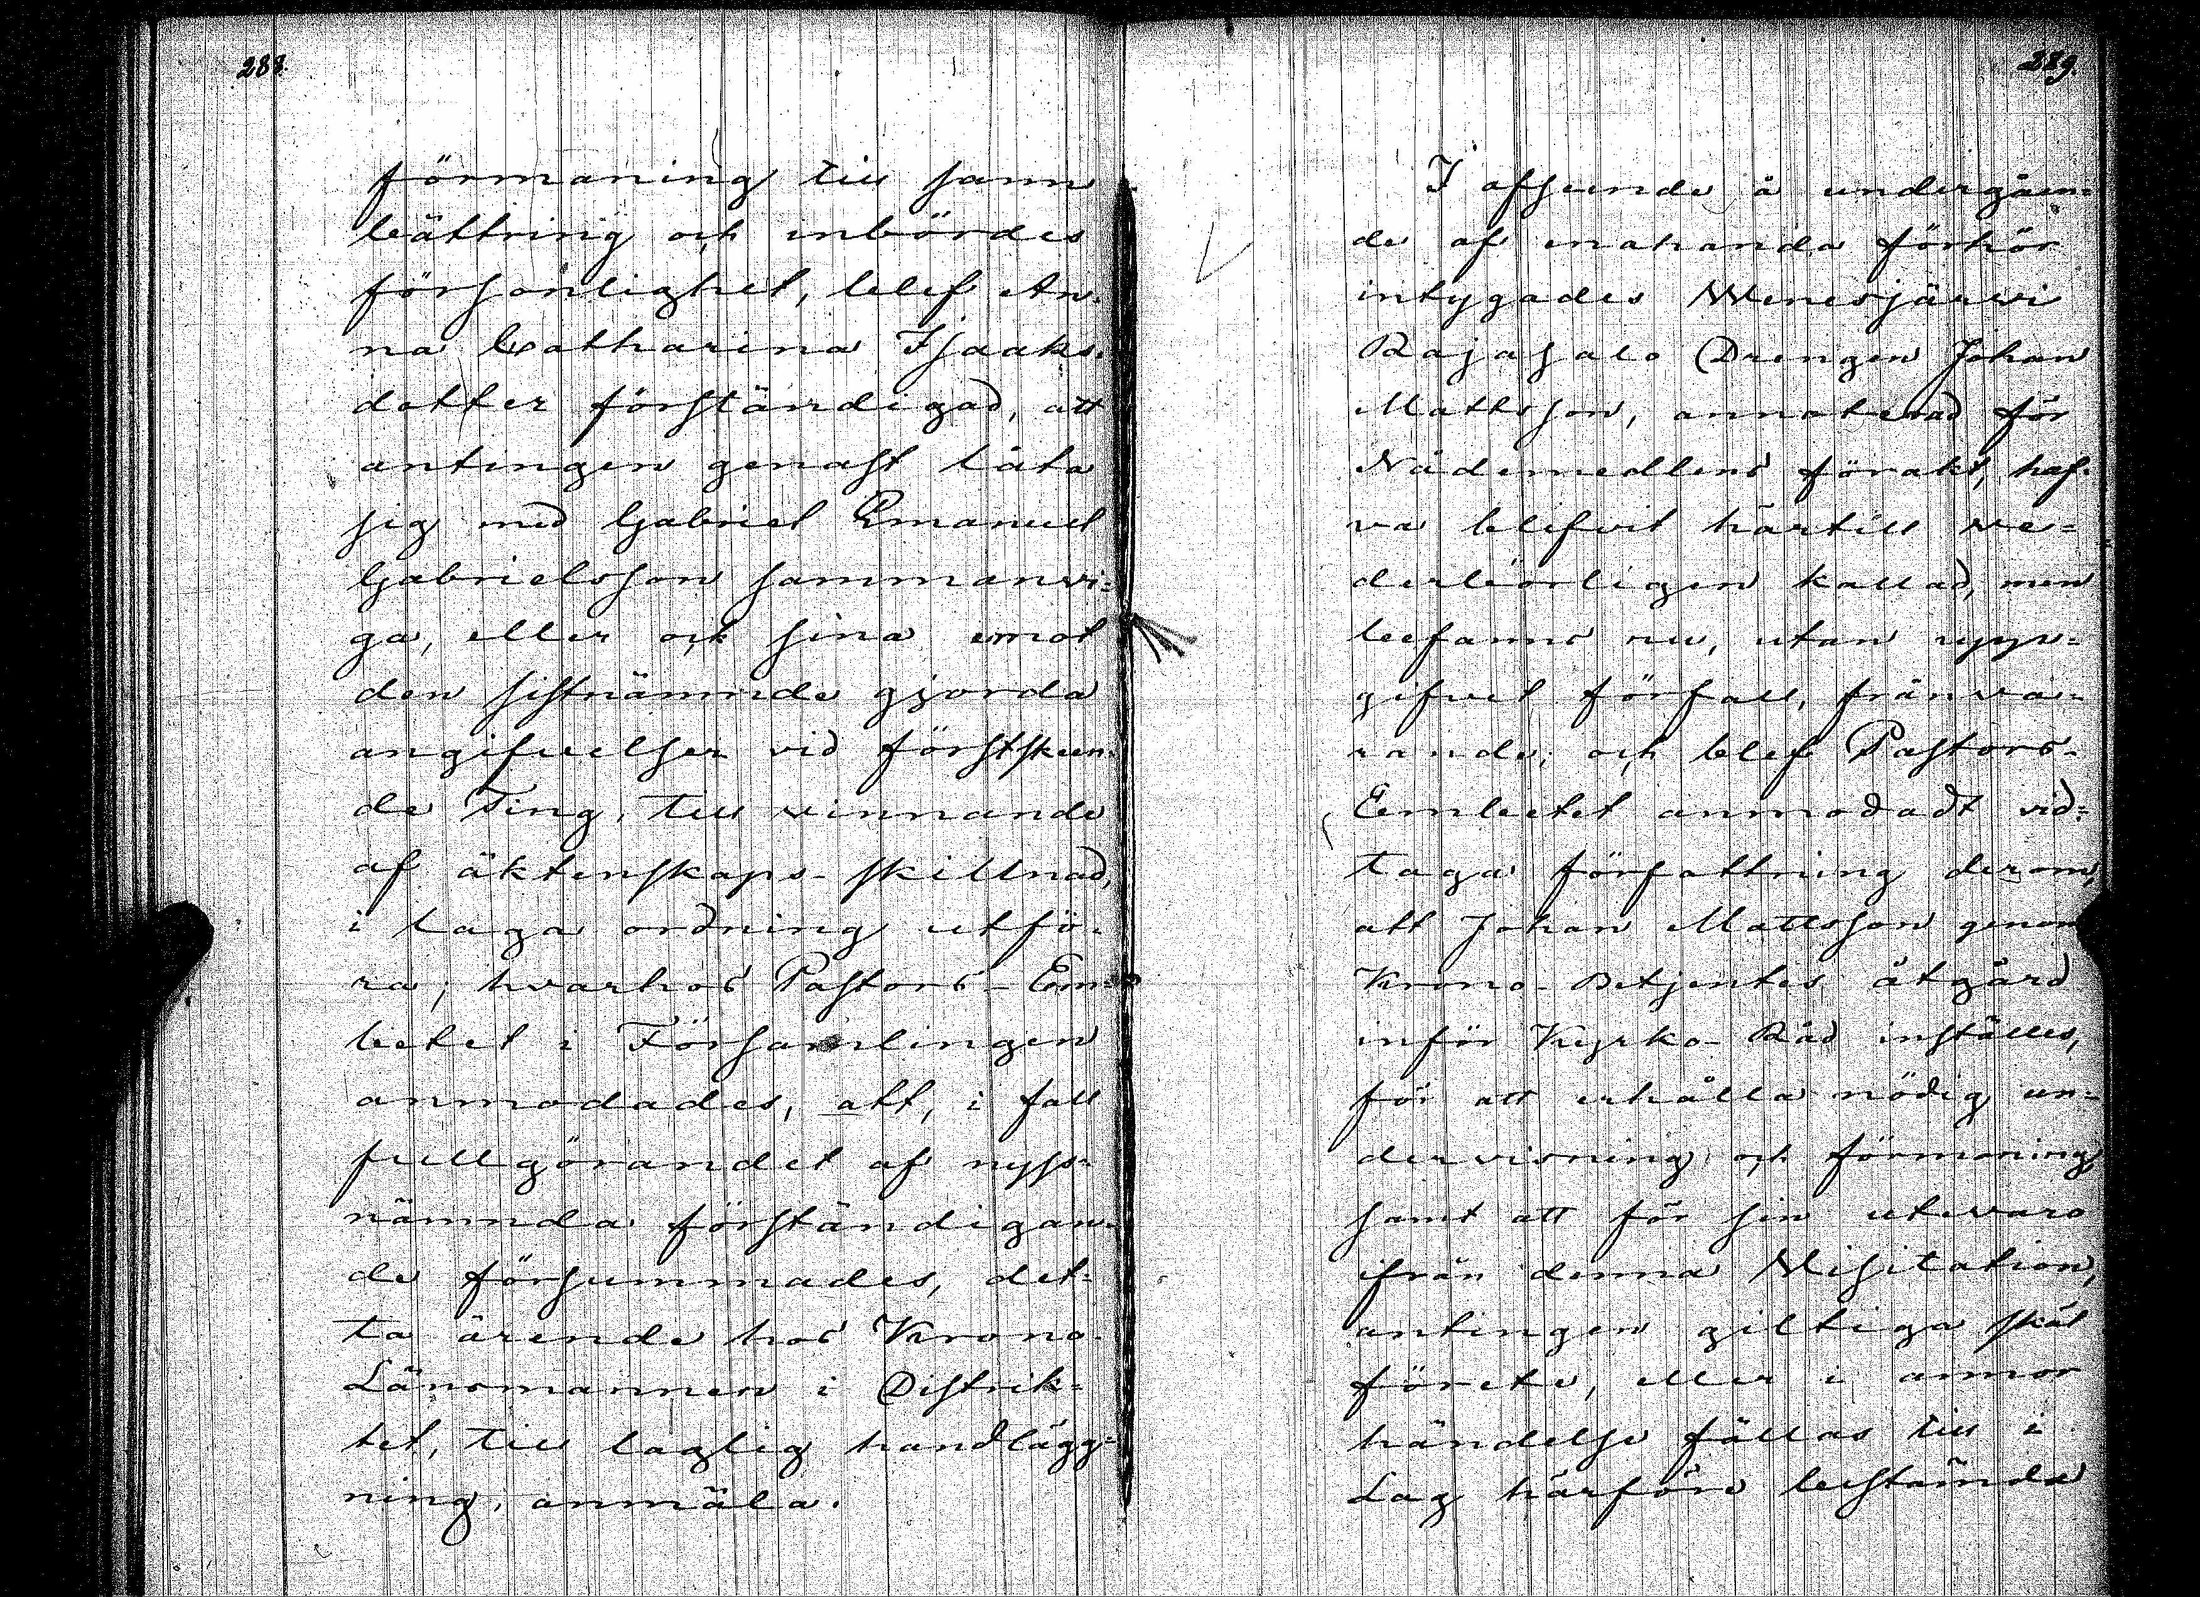 288.
förmaning till sann
bättring och inbördes
försonlighet, blef An-
na Catharina Isaaks-
dotter förständigad, att
antingen genast låta
sig med Gabriel Emanuel
Gabrielsson sammanvi-
ga, eller ock sina emot
den sistnämnde gjorda
angifvelser vid förstskun-
de Ting, till vinnande
af äktenskaps-skillnad,
i laga ordning utfö-
ra; hvarhos Pastors-Em-
betet i Församlingen
anmodades, att, i fall
fullgörandet af nyss-
nämnda förständigan-
de försummades, det-
ta ärende hos Krono-
Länsmannen i Distrik-
tet, till laglig handlägg-
ning, anmäla.
289.
I afseende å undergåen-
de af enahanda förhör
intygades Wenesjärwi
Rajasalo Drengen Johan
Mattsson, annoterad för
Nådemedlens förakt, haf-
va blifvit härtill ve-
derbörligen kallad, men
befanns nu, utan upp-
gifvet förfall, frånva-
rande; och blef Pastors-
Embetet anmodadt vid-
taga författning derom,
att Johan Mattsson genom
Krono-Betjentes åtgärd
inför Kyrko-Råd inställes,
för att erhålla nödig un-
dervisning och förmaning,
samt att för sin utevaro
ifrån denna Visitation,
antingen giltiga skäl
förete, eller i annor
händelse fällas till i
Lag härföre bestämde